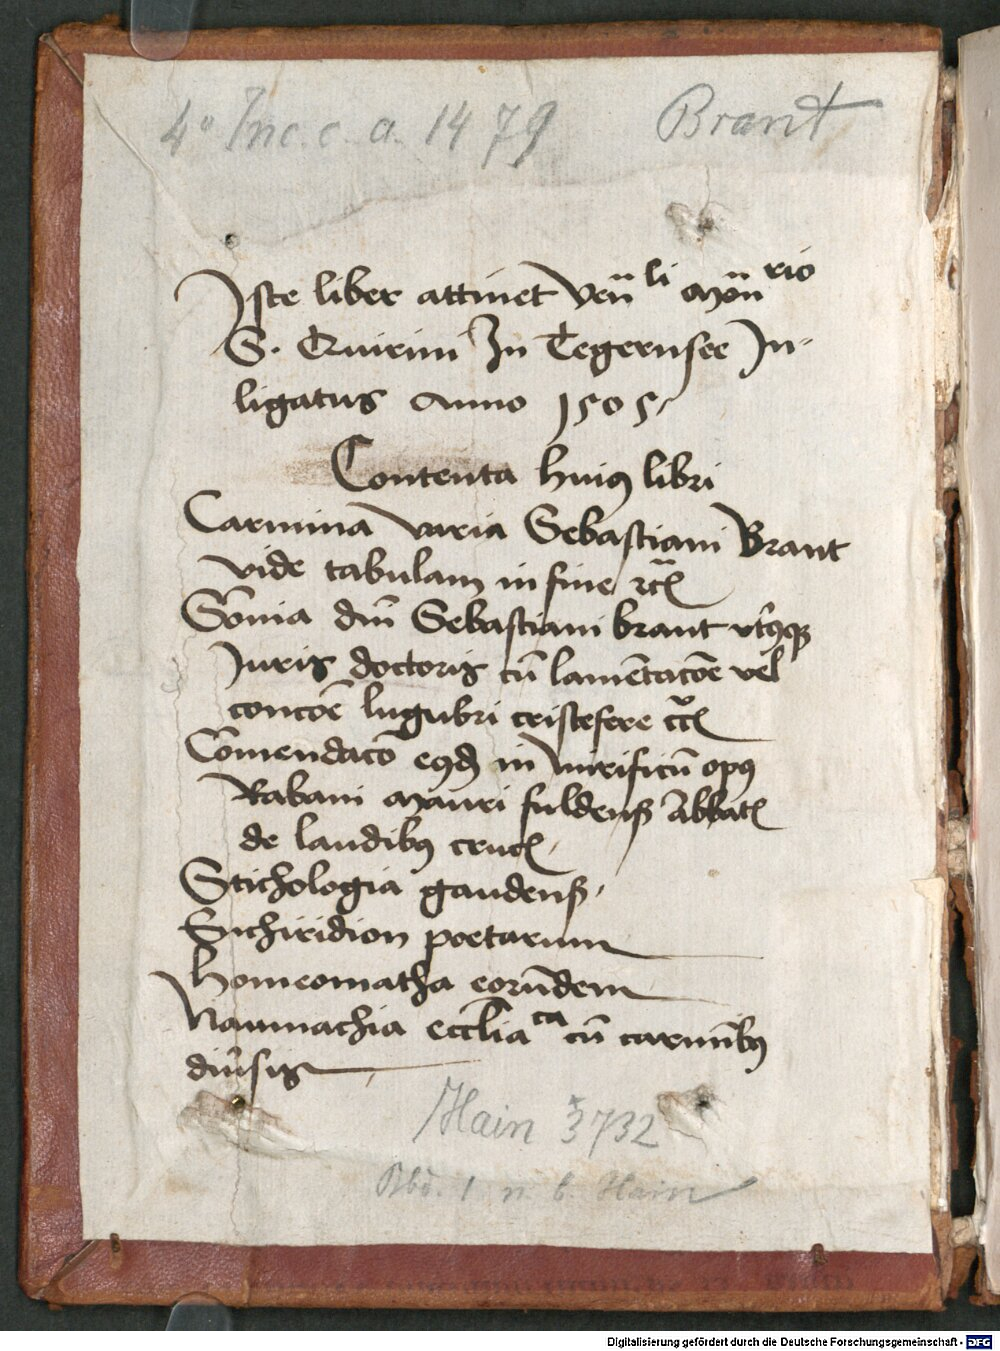 4° Inc. c. a. 1479 Brant
Iste liber attinet Ven̄li Mon̄rio
S. Quirini In Tegernsee In-
ligatus Anno 1505
Contenta huiꝯ libri
Carmina varia Sebastiani Brant
vide tabulam in fine ꝛc̄
Sōnia dn̄i Sebastiani brant
Iuris doctoris cū lamētacōe vel
concōe lugubri
Cōmendacō in mirificū opꝯ
Rabani Mauri fuldenß Abbatꝭ
de laudibꝯ crucꝭ
Stichologia gaudenß
Enchiridion poetarum
homeomatha eorūdem
Naumachia eccl̄iaca cū carmīibꝯ
diūsis
Hain 3732
Hain
Digitalisierung gefördert durch die Deutsche Forschungsgemeinschaft - DFG